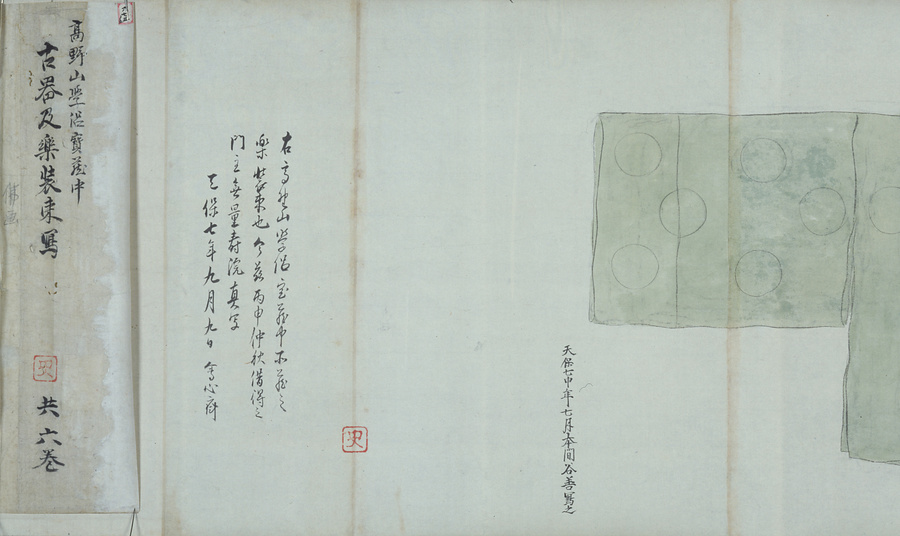 天保七申年七月本間谷善寫之
右高野山学侶宝蔵中所蔵之
楽装束也今茲丙申仲秋借得之
門主無量壽院真写
天保七年九月九日
高野山學侶寶蔵中
古器及樂装束寫
共六巻